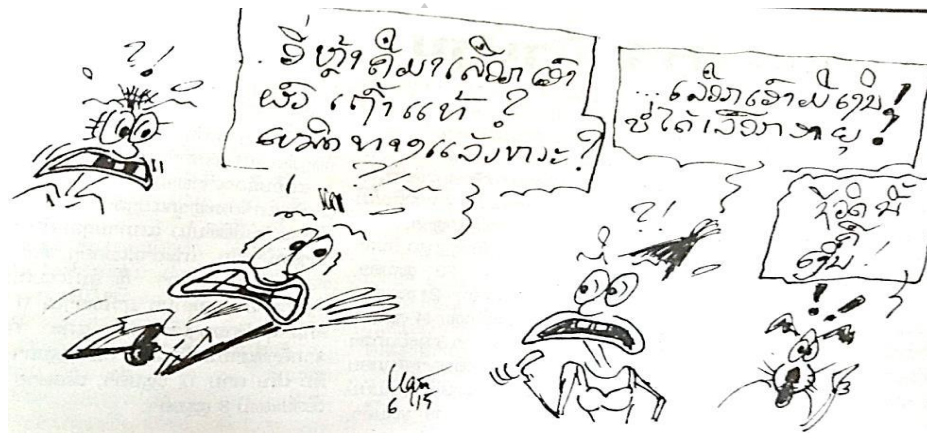 ?!
ອີ່ຫຼ້າ ຄືມາເລືອກເອົາ
ຜົວ ເຖົ້າແທ້ ?
ໝົດທາງແລ້ວຫວະ ?
...ເລືອກເອົາມີເງິນ !
ບໍ່ໄດ້ເລືອກອາຍຸ !
?!
ຊໍອິດນີ້
ເງິນ !
! !
6/15